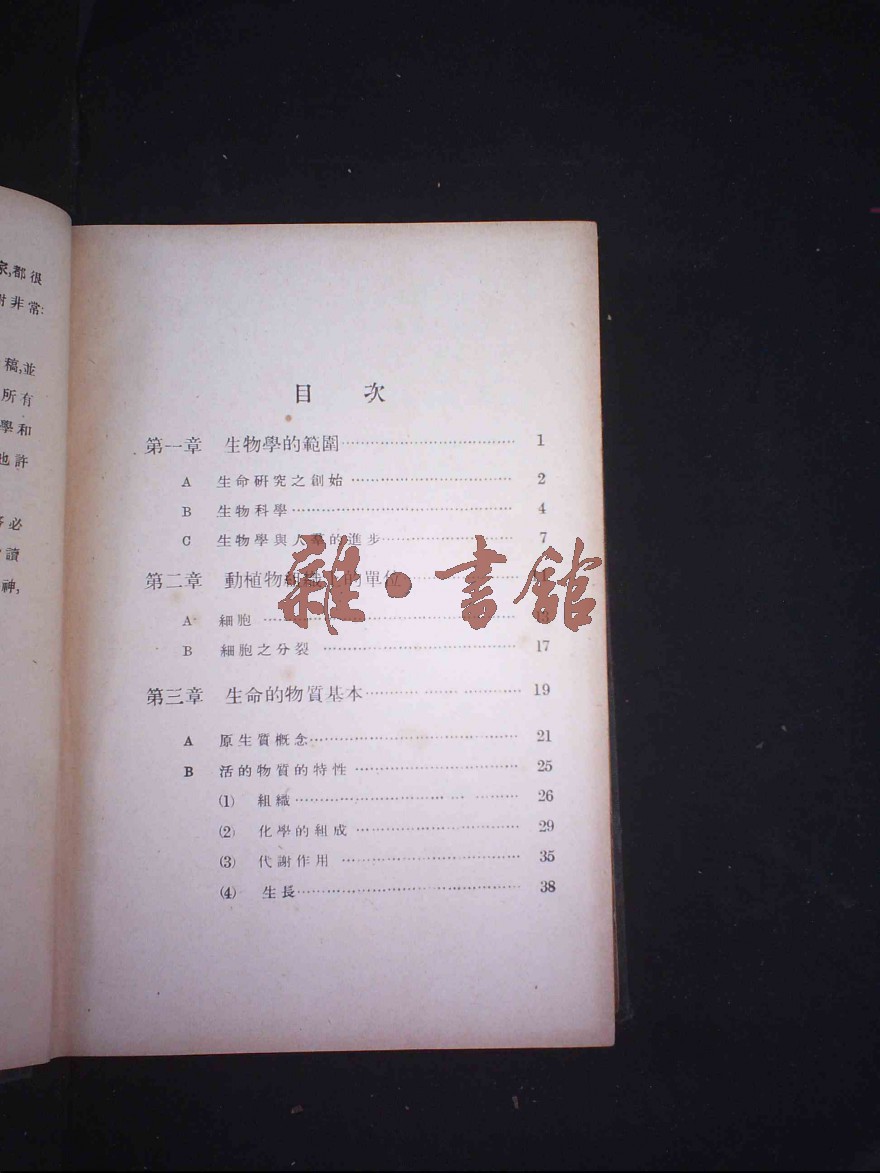 家,都很
謝非常:
稿,並
所有
學和
也許
必
讀
神,
目 次
第一章 生物學的範圍 1
A 生命研究之創始 2
B 生物科學 4
C 生物學與人羣的進步 7
第二章 動植物組織上的單位
A 細胞 13
B 細胞之分裂 17
第三章 生命的物質基本 19
A 原生質概念 21
B 活的物質的特性 25
(1) 組織 26
(2) 化學的組成 29
(3) 代謝作用 35
(4) 生長 38
雜·書館